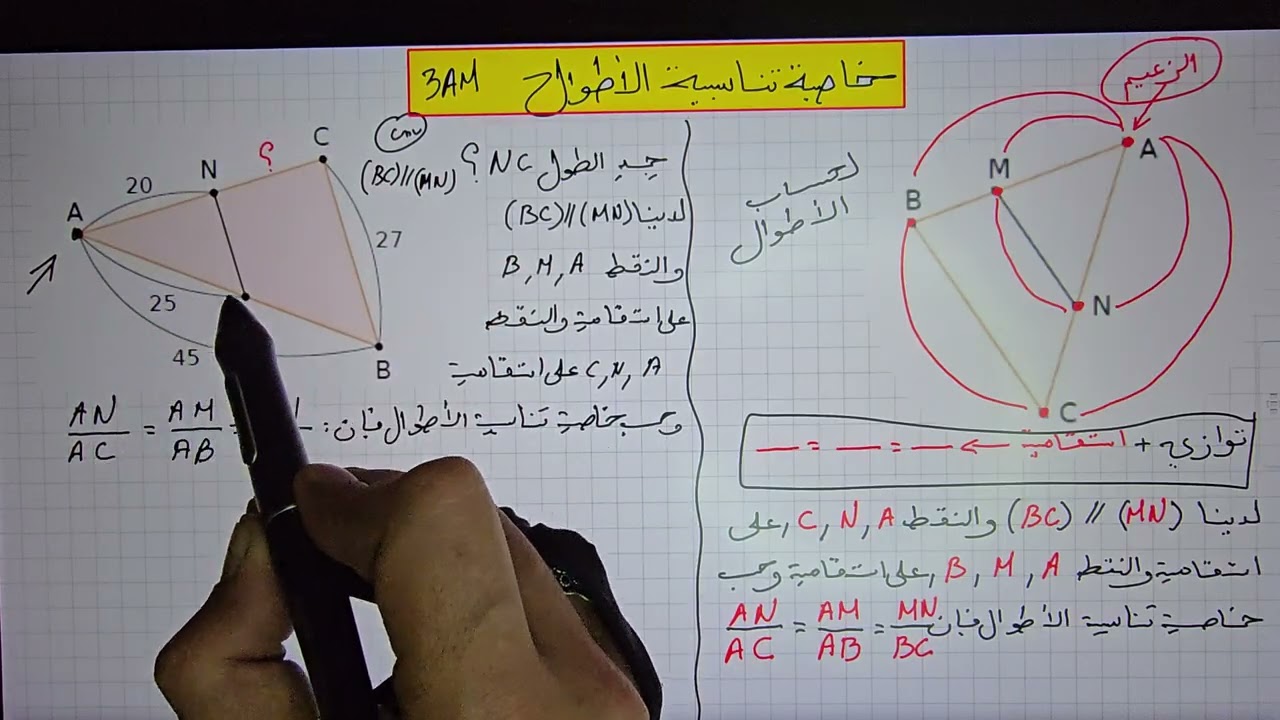 خاصية تناسبية الأطوال 3AM
الزعيم
A
M
B
N
C
لحساب
الأطوال
توازي + استقامية ← — = — = —
لدينا (MN) // (BC) والنقط C, N, A على
استقامية والنقط B, M, A على استقامية وحسب
خاصية تناسبية الأطوال فإن AN/AC = AM/AB = MN/BC
جد الطول NC ؟ (BC)//(MN)
cm
لدينا (BC)//(MN)
والنقط B, M, A
على استقامية والنقط
C, N, A على استقامية
وحسب خاصية تناسبية الأطوال فإن: AN/AC = AM/AB =
C
؟
N
20
A
27
25
45
B